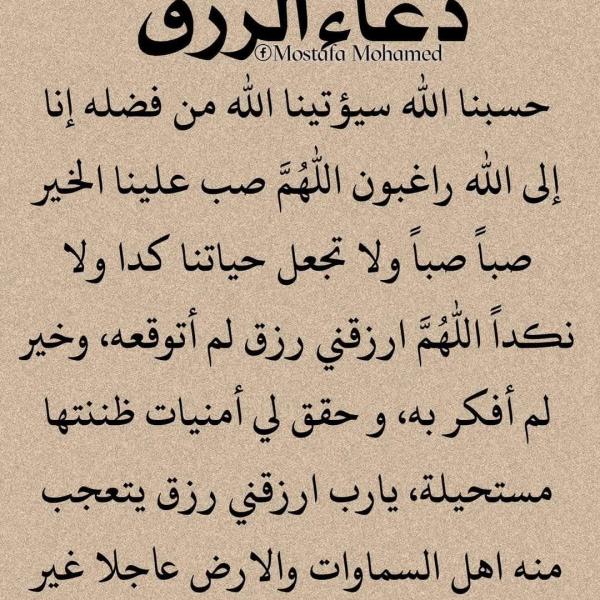 دعاء الرزق
Mostafa Mohamed
حسبنا الله سيؤتينا الله من فضله إنا
إلى الله راغبون اللهُمَّ صب علينا الخير
صباً صباً ولا تجعل حياتنا كدا ولا
نكداً اللهُمَّ ارزقني رزق لم أتوقعه، وخير
لم أفكر به، و حقق لي أمنيات ظننتها
مستحيلة، يارب ارزقني رزق يتعجب
منه اهل السماوات والارض عاجلا غير